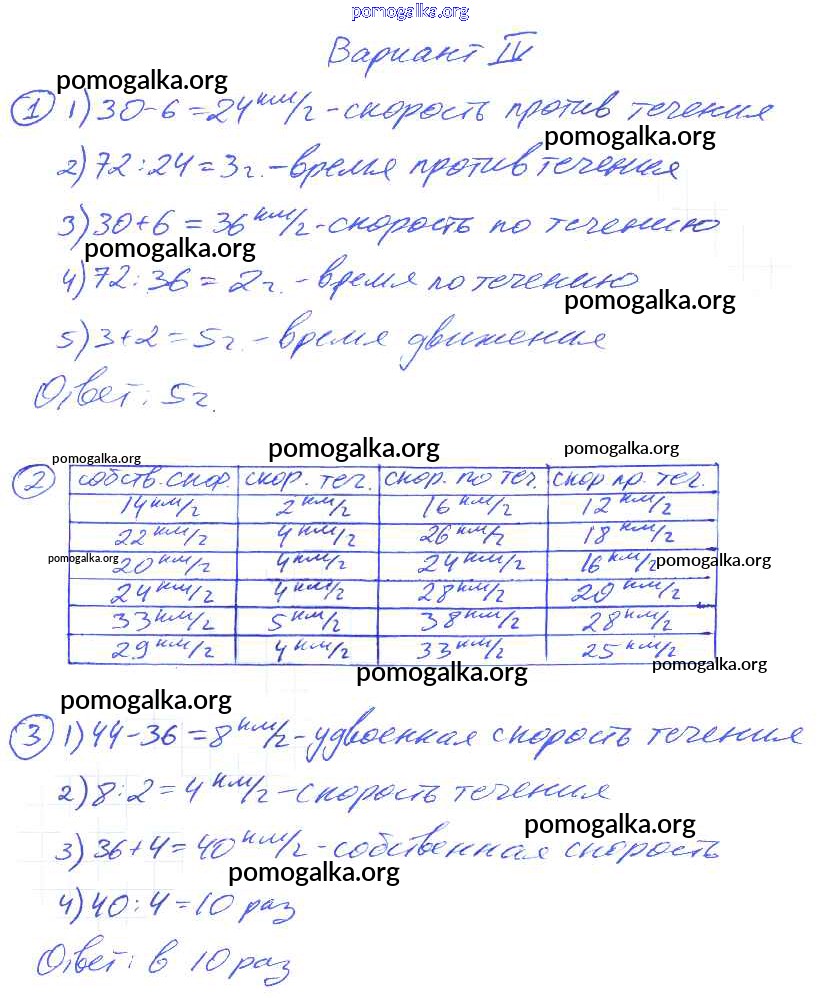 pomogalka.org
Вариант IV
pomogalka.org
① 1) 30-6=24км/г-скорость против течения
pomogalka.org
2) 72:24=3г.-время против течения
3) 30+6=36км/г-скорость по течению
pomogalka.org
4) 72:36=2г.-время по течению
pomogalka.org
5) 3+2=5г.-время движения
Ответ: 5г.
pomogalka.org pomogalka.org pomogalka.org
② собств. скор. скор. теч. скор. по теч. скор пр. теч.
14км/г 2км/г 16км/г 12км/г
22км/г 4км/г 26км/г 18км/г
pomogalka.org 20км/г 4км/г 24км/г 16км/г pomogalka.org
24км/г 4км/г 28км/г 20км/г
33км/г 5км/г 38км/г 28км/г
29км/г 4км/г 33км/г 25км/г
pomogalka.org pomogalka.org
pomogalka.org
③ 1) 44-36=8км/г-удвоенная скорость течения
2) 8:2=4км/г-скорость течения
pomogalka.org
3) 36+4=40км/г-собственная скорость
pomogalka.org
4) 40:4=10 раз
Ответ: в 10 раз